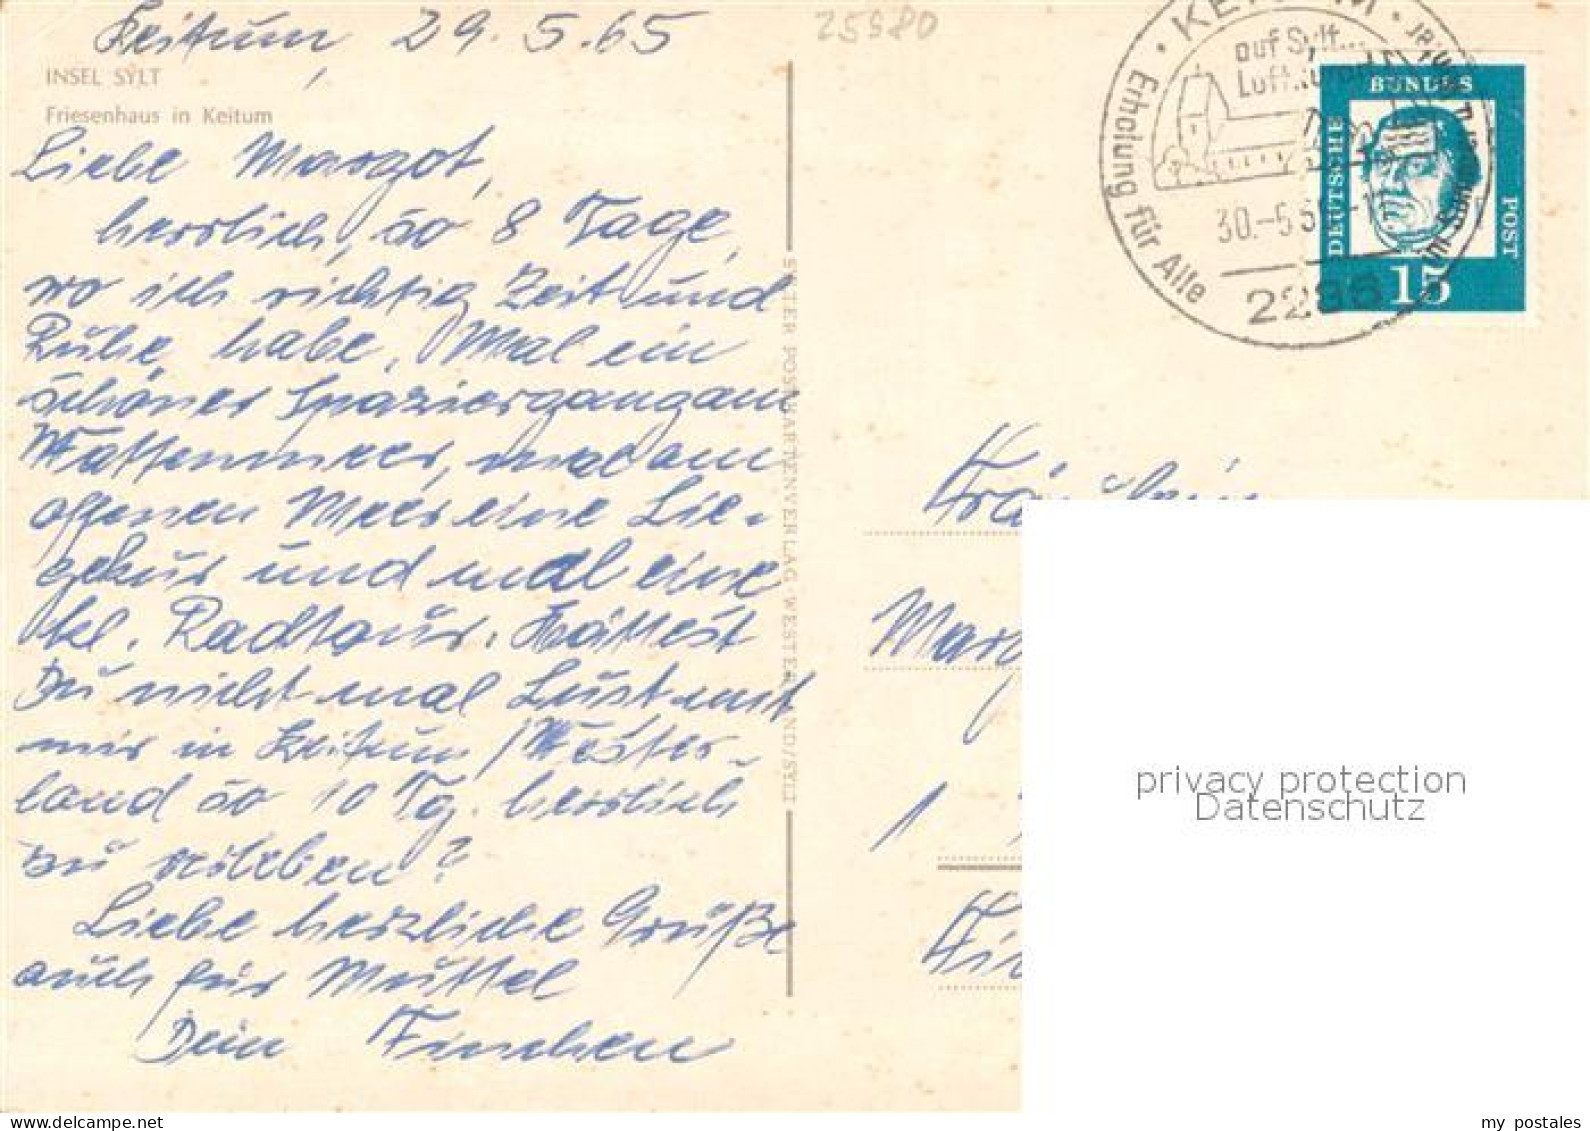 Keitum, 29.5.65
INSEL SYLT
Friesenhaus in Keitum
Liebe Margot,
herrlich, so 8 Tage,
wo ich richtig Zeit und
Ruhe habe, Mal ein
schöner Spaziergang am
Wattenmeer, mal am
offenen Meer eine Lie-
gekur und mal eine
kl. Radtour. Hättest
Du nicht mal Lust mit
mir in Keitum/Wester-
land so 10 Tg. herrlich
zu erleben?
Liebe herzliche Grüße
auch für Muttel
Dein Finchen
SYLTER POSTKARTENVERLAG · WESTERLAND/SYLT
25980
auf Sylt...
Erholung für Alle
30.-5.6
2286
BUNDES
DEUTSCHE
POST
15
Fräulein
Marg
1
privacy protection
Datenschutz
www.delcampe.net
my_postales